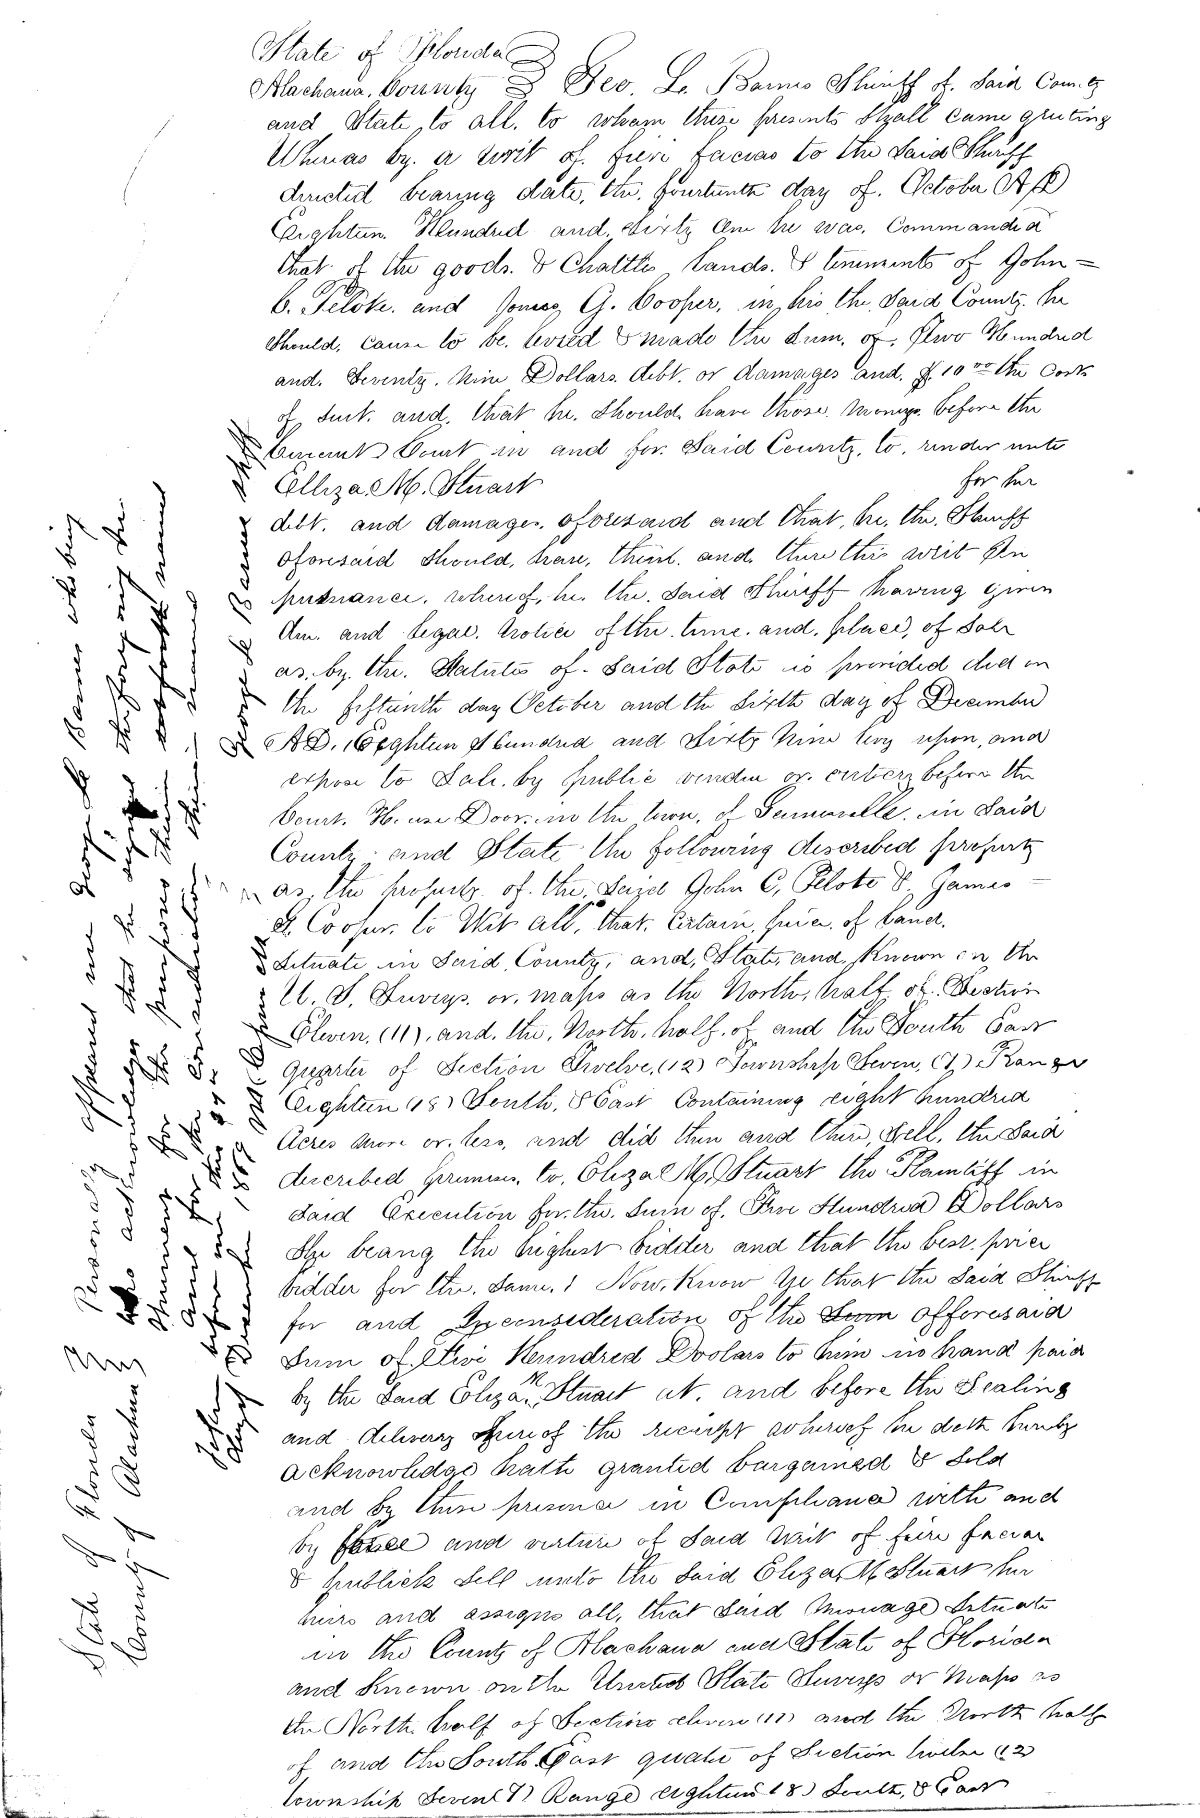 State of Florida
Alachua County Geo. L. Barnes Sheriff of Said County
and State to all to whom these presents Shall came greeting
Whereas by a writ of fieri facias to the Said Sheriff
directed bearing date the fourteenth day of October A D
Eighteen Hundred and Sixty One he was Commanded
that of the goods & Chattles Lands & tenements of John
C. Pelote and James G. Cooper, in his the Said County he
Should cause to be levied & made the Sum of Two Hundred
and Seventy Nine Dollars debt or damages and $10 00 the Costs
of Suit and that he Should have those moneys before the
Circuit Court in and for Said County to render unto
Elliza M. Stuart for her
debt and damages aforesaid and that he the Sheriff
aforesaid Should have then and there this writ In
pursuance whereof he the Said Sheriff having given
due and legal notice of the time and place of Sale
as by the Statutes of Said State is provided did on
the fifteenth day October and the Sixth day of December
A D. Eighteen Hundred and Sixty Nine levy upon and
expose to Sale by public vendue or outcry before the
Court House Door in the town of Gainesville in Said
County and State the following described property
as the property of the Said John C. Pelote & James
G. Cooper to Wit all that Certain piece of land
Situate in Said County and State and Known on the
U. S. Surveys or maps as the North half of Section
Eleven (11) and the North half of and the South East
quarter of Section Twelve (12) Township Seven (7) Range
Eighteen (18) South & East Containing eight hundred
Acres more or less and did then and there Sell the Said
described premises to Eliza M. Stuart the Plaintiff in
Said Execution for the Sum of Five Hundred Dollars
She beang the highest bidder and that the best price
bidder for the Same. Now Know Ye that the Said Sheriff
for and In consideration of the Sum afforesaid
Sum of Five Hundred Doolars to him in hand paid
by the Said Eliza M Stuart at and before the Sealing
and delivery hereof the receipt whereof he doth hereby
acknowledge hath granted bargained & Sold
and by these presence in Compliance with and
by force and virture of Said Writ of feire facias
& publick Sell unto the Said Eliza M Stuart her
heirs and assigns all that Said Situate
in the County of Alachaua and State of Florida
and Known on the United State Surveys or Maps as
the North half of Section eleven (11) and the North half
of and the South East of Section twelve (12)
township Seven (7) Range eighteen (18) South & East
State of Florida
County of Alachua
Personally appeared me George L Barnes who being
acknowledges that he signed the foregoing
for the purposes therein
and for the consideration therein named
before me this 24th
day of December 1869
George L Barnes Shff